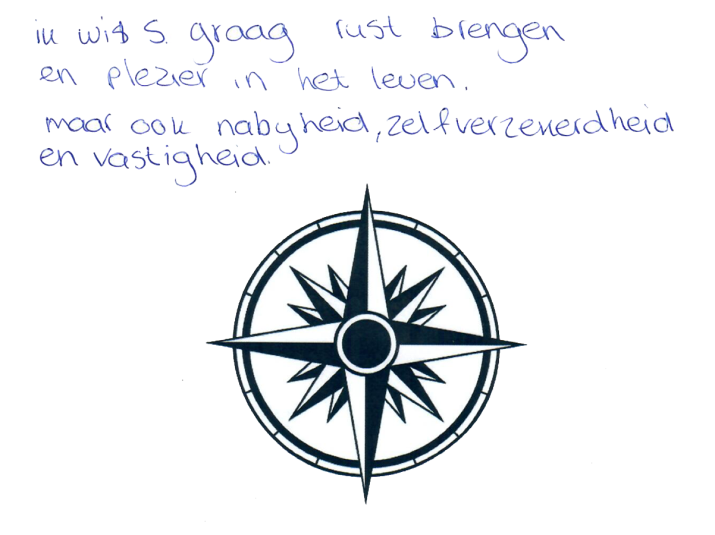 ik wil S. graag rust brengen
en plezier in het leven.
maar ook nabyheid, zelfverzekerdheid
en vastigheid.